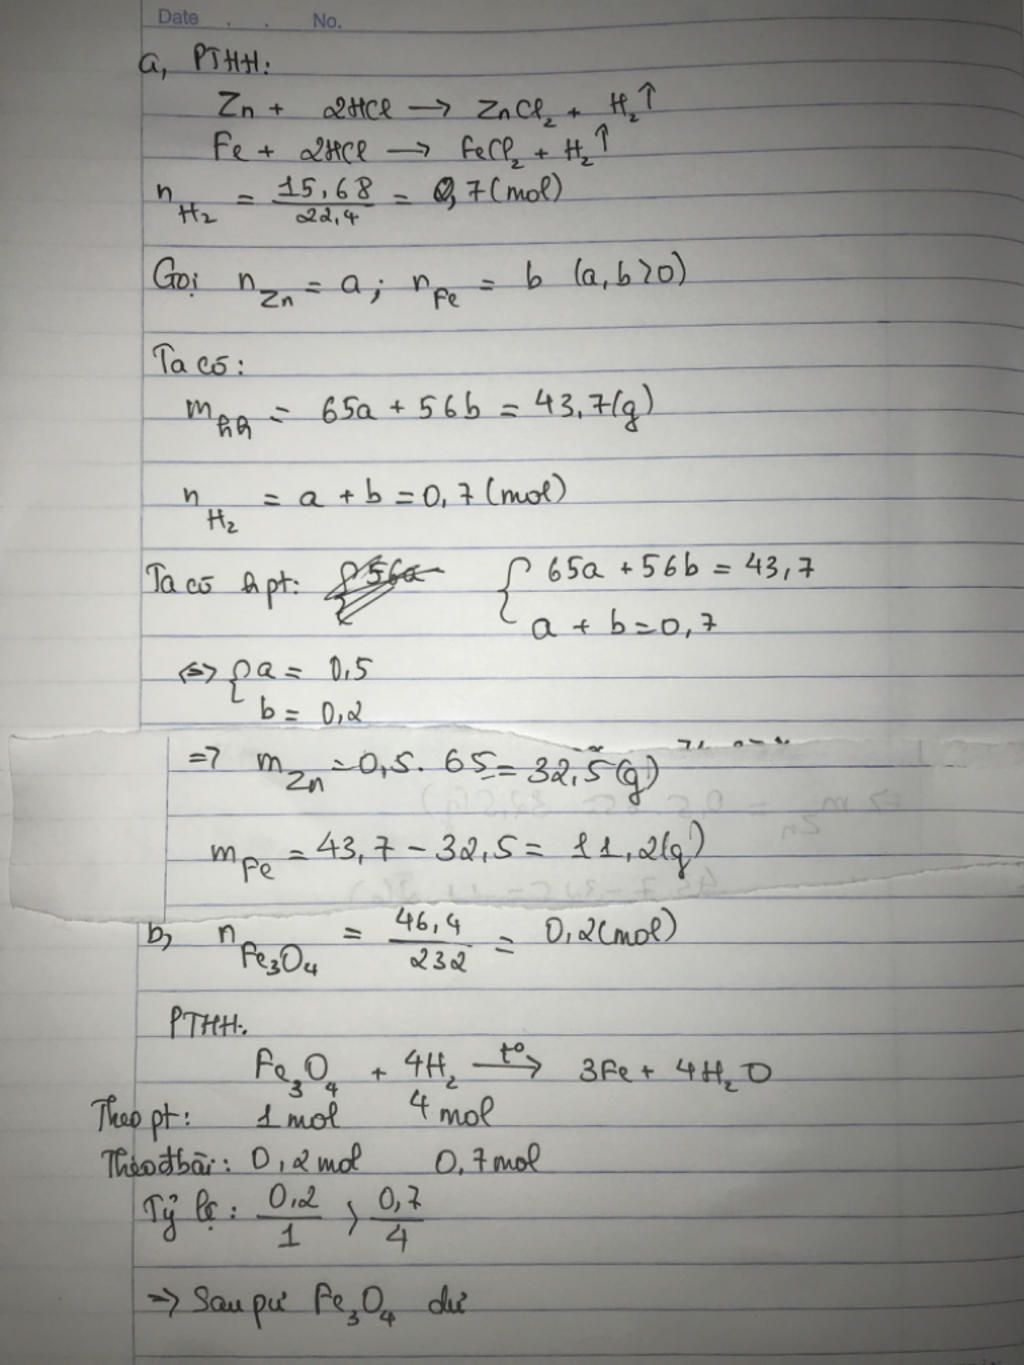 Date . . No.
a, PTHH:
Zn + 2HCl → ZnCl₂ + H₂↑
Fe + 2HCl → FeCl₂ + H₂↑
n_H₂ = 15,68/22,4 = 0,7 (mol)
Gọi n_Zn = a; n_Fe = b (a, b > 0)
Ta có:
m_hh = 65a + 56b = 43,7(g)
n_H₂ = a + b = 0,7 (mol)
Ta có hpt: { 65a + 56b = 43,7
a + b = 0,7
⇔ { a = 0,5
b = 0,2
=> m_Zn = 0,5 . 65 = 32,5 (g)
m_Fe = 43,7 - 32,5 = 11,2(g)
b, n_Fe₃O₄ = 46,4/232 = 0,2(mol)
PTHH:
Fe₃O₄ + 4H₂ —t°→ 3Fe + 4H₂O
Theo pt: 1 mol 4 mol
Theo đbài: 0,2 mol 0,7 mol
Tỷ lệ: 0,2/1 > 0,7/4
=> Sau pư Fe₃O₄ dư